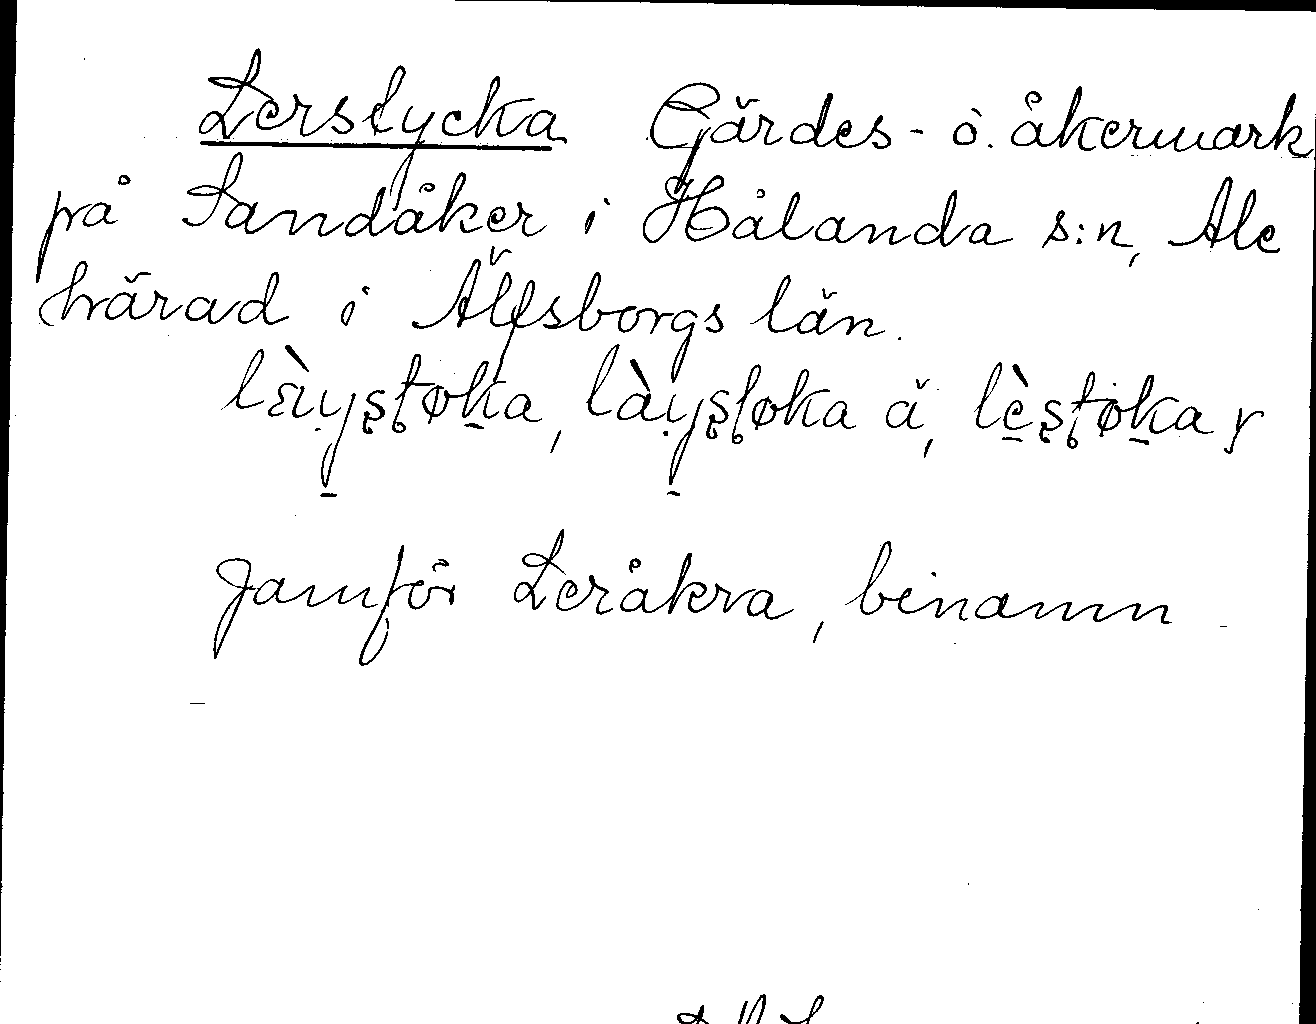 Lerstycka Gärdes- o. åkermark
på Sandåker i Hålanda s:n, Ale
härad i Älfsborgs län.
lɛ̀ıyştøka, làıyştøka ä, lèştøka y
Jamför Leråkra, binamn